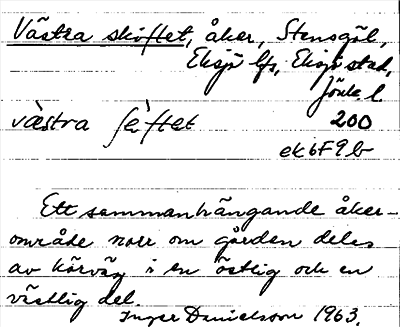 Västra skiftet, åker, Stensgöl,
Eksjö lfs, Eksjö stad,
Jönk. l.
væ̀stra ʃèftet 200
ek 6F9b
Ett sammanhängande åker-
område norr om gården delas
av körväg i en östlig och en
västlig del.
Inger Danielsson 1963.